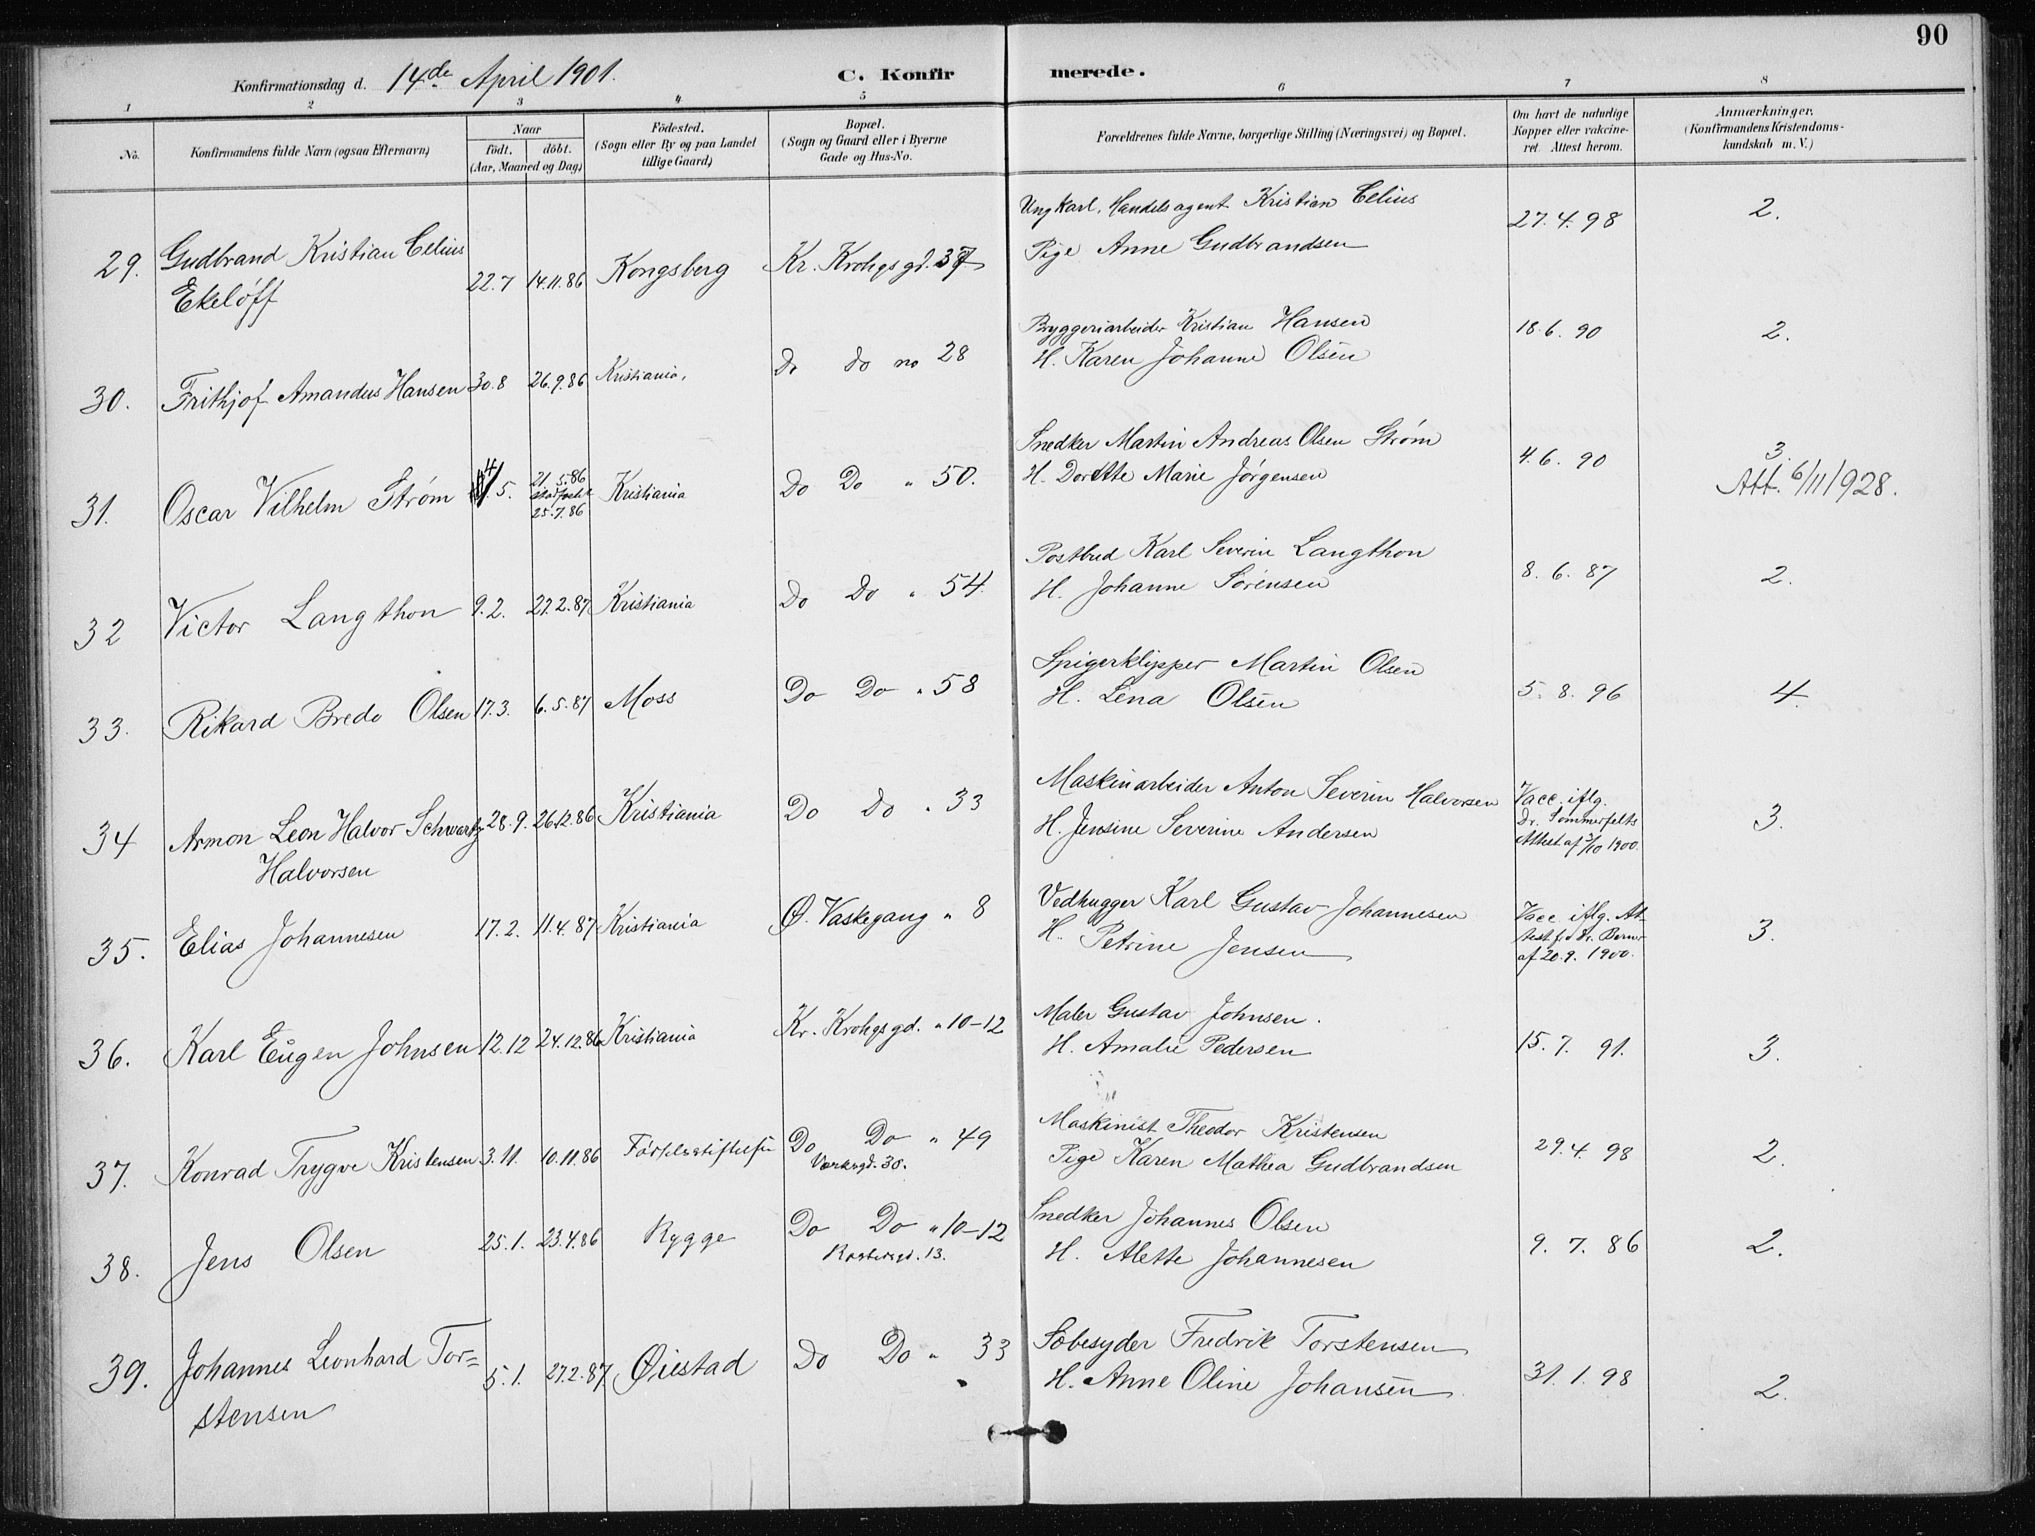 90
Konfirmationsdag d. 14de April 1901.
C. Konfirmerede.
1 2 3 4 5 6 7 8
No.
Konfirmandens fulde Navn (ogsaa Efternavn)
Naar
født. døbt.
(Aar, Maaned og Dag)
Fødested.
(Sogn eller By og paa Landet
tillige Gaard)
Bopæl.
(Sogn og Gaard eller i Byerne
Gade og Hus-No.
Forældrenes fulde Navne, borgerlige Stilling (Næringsvei) og Bopæl.
Om havt de naturlige
Kopper eller vakcine-
ret. Attest herom.
Anmærkninger.
(Konfirmandens Kristendoms-
kundskab m. V.)
29. Gudbrand Kristian Celius 22.7 14.11.86 Kongsberg Kr. Krohgsgd. 37 Ungkarl, Handelsagent Kristian Celius 27.4.98 2.
Ekeløff Pige Anne Gudbrandsen
30. Frithjof Amandus Hansen 30.8 26.9.86 Kristiania, Do do no 28 Bryggeriarbeider Kristian Hansen 18.6.90 2.
H. Karen Johanne Olsen
31. Oscar Vilhelm Strøm 4.5. 21.5.86 Kristiania Do Do " 50. Snedker Martin Andreas Olsen Strøm 4.6.90 3.
stadfæstet H. Dorette Marie Jørgensen Att. 6/11 1928.
25.7.86
32 Victor Langthon 9.2. 27.2.87 Kristiania Do Do " 54. Postbud Karl Severin Langthon 8.6.87 2.
H. Johanne Sørensen
33. Rikard Bredo Olsen 17.3. 6.5.87 Moss Do Do " 58 Spigerklipper Martin Olsen 5.8.96 4.
H. Lena Olsen
34 Armon Leon Halvor Schwartz 28.9. 26.12.86 Kristiania Do Do " 33 Maskinarbeider Anton Severin Halvorsen Vacc. iflg. 3.
Halvorsen H. Jensine Severine Andersen Dr. Sommerfelts
Attest af 5/10 1900.
35. Elias Johannesen 17.2. 11.4.87 Kristiania Ø. Vaskegang " 8 Vedhugger Karl Gustav Johannesen Vacc iflg. At- 3.
H. Petrine Jensen test f. Dr. Berner
af 20.9.1900.
36. Karl Eugen Johnsen 12.12 24.12.86 Kristiania Kr. Krohgsgd. " 10-12 Maler Gustav Johnsen. 15.7.91. 3.
H. Amalie Pedersen
37. Konrad Trygve Kristensen 3.11. 10.11.86 Fødselsstiftelsen Do Do " 49 Maskinist Theodor Kristensen 29.4.98 2.
Værksgd. 30. Pige Karen Mathea Gudbrandsen
38. Jens Olsen 25.1. 23.4.86 Rygge Do Do " 10-12 Snedker Johannes Olsen 9.7.86 2.
13. H. Alette Johannesen
39. Johannes Leonhard Tor= 5.1. 27.2.87 Øiestad Do Do " 33 Sæbesyder Fredrik Torstensen 31.1.98 2.
stensen H. Anne Oline Johansen